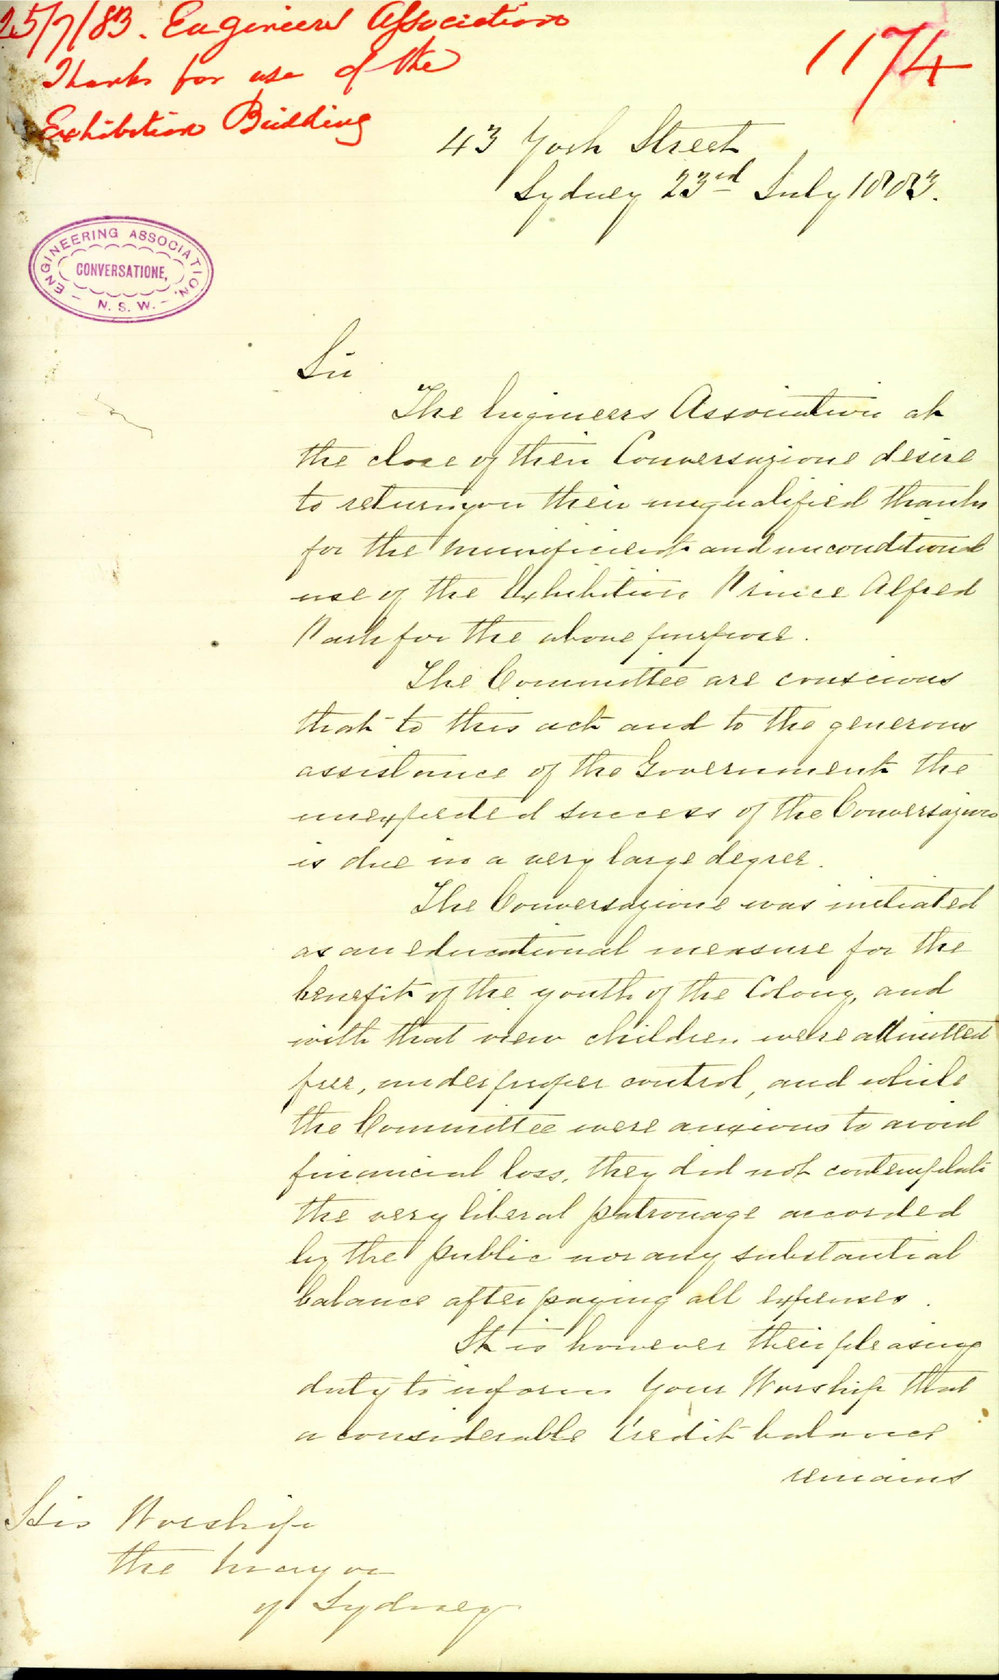 25/7/83. Engineers Association
Thanks for use of the
Exhibition Building
1174
43 York Street
Sydney 23rd July 1883.
ENGINEERING ASSOCIATION
CONVERSATIONE,
N. S. W.
Sir
The Engineers Association at
the close of their Conversazione desire
to return you their unqualified thanks
for the munificient and unconditional
use of the Exhibition Prince Alfred
Park for the above purpose.
The Committee are conscious
that to this act and to the generous
assistance of the Government the
unexpected success of the Conversazione
is due in a very large degree.
The Conversazione was initiated
as an educational measure for the
benefit of the youth of the Colony, and
with that view children were admitted
free, under proper control, and while
the Committee were anxious to avoid
financial loss, they did not contemplate
the very liberal patronage accorded
by the public nor any substantial
balance after paying all expenses.
It is however their pleasing
duty to inform Your Worship that
a considerable credit balance
remains
His Worship
the Mayor
of Sydney